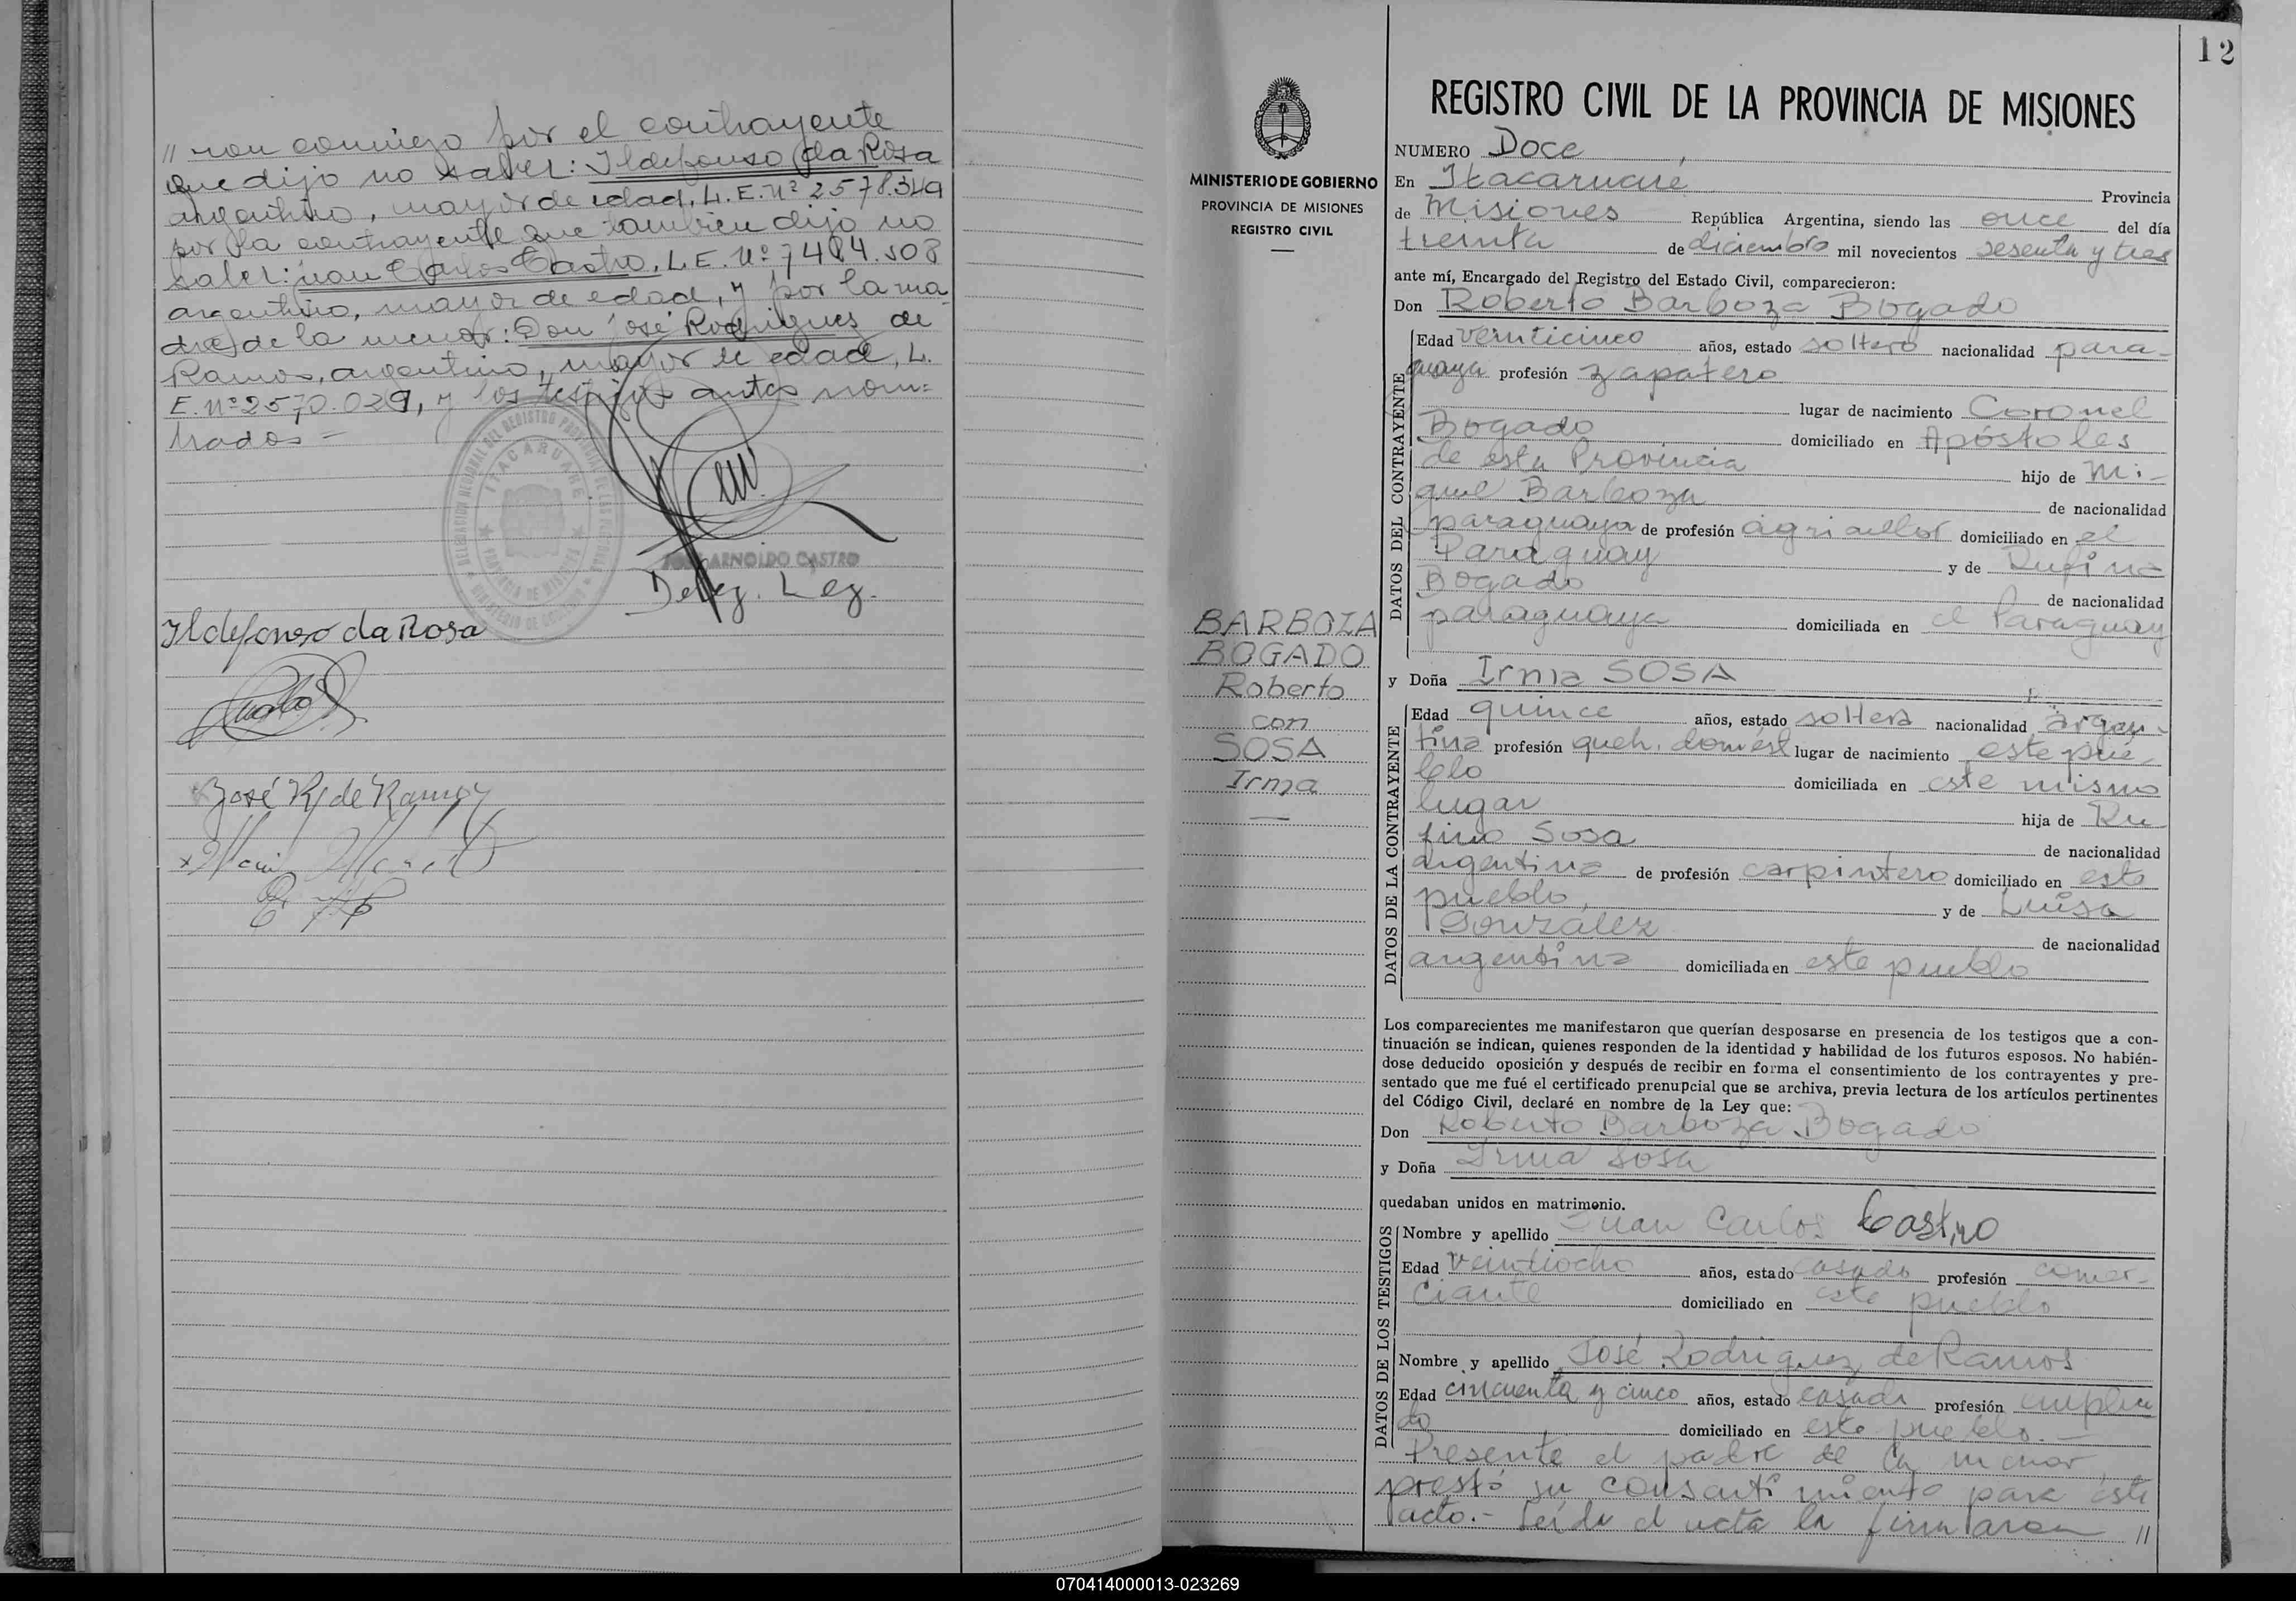 // ron conmigo por el contrayente
que dijo no saber: Ildefonso da Rosa
argentino, mayor de edad, L.E. Nº 2578.349
por la contrayente que tambien dijo no
saber: Juan Carlos Castro, L.E. Nº 7484.508
argentino, mayor de edad, y por la ma
dre de la menor: Don José Rodrigues de
Ramos, argentino, mayor de edad, L.
E. Nº 2570.029, y los testigos antes nom=
brados =
DELEGACION REGIONAL DEL REGISTRO PROVINCIAL DE LAS PERSONAS
ITACARUARE
PROVINCIA DE MISIONES
ARNOLDO CASTRO
Deleg. Leg.
Ildefonso da Rosa
José R de Ramos
12
MINISTERIO DE GOBIERNO
PROVINCIA DE MISIONES
REGISTRO CIVIL
BARBOZA
BOGADO
Roberto
con
SOSA
Irma
—
REGISTRO CIVIL DE LA PROVINCIA DE MISIONES
NUMERO Doce
En Itacaruaré Provincia
de Misiones República Argentina, siendo las once del día
treinta de diciembre mil novecientos sesenta y tres
ante mí, Encargado del Registro del Estado Civil, comparecieron:
Don Roberto Barboza Bogado
DATOS DEL CONTRAYENTE
Edad veinticinco años, estado soltero nacionalidad para-
guaya profesión zapatero
lugar de nacimiento Coronel
Bogado domiciliado en Apóstoles
de esta Provincia hijo de Mi-
guel Barboza de nacionalidad
paraguaya de profesión agricultor domiciliado en el
Paraguay y de Rufina
Bogado de nacionalidad
paraguaya domiciliada en el Paraguay
y Doña Irma SOSA
DATOS DE LA CONTRAYENTE
Edad quince años, estado soltera nacionalidad argen-
tina profesión queh. domést lugar de nacimiento este pue-
blo domiciliada en este mismo
lugar hija de Ru
fino Sosa de nacionalidad
argentina de profesión carpintero domiciliado en este
pueblo, y de Luisa
González de nacionalidad
argentina domiciliada en este pueblo
Los comparecientes me manifestaron que querían desposarse en presencia de los testigos que a con-
tinuación se indican, quienes responden de la identidad y habilidad de los futuros esposos. No habién-
dose deducido oposición y después de recibir en forma el consentimiento de los contrayentes y pre-
sentado que me fué el certificado prenupcial que se archiva, previa lectura de los artículos pertinentes
del Código Civil, declaré en nombre de la Ley que:
Don Roberto Barboza Bogado
y Doña Irma Sosa
quedaban unidos en matrimonio.
DATOS DE LOS TESTIGOS
Nombre y apellido Juan Carlos Castro
Edad veintiocho años, estado casado profesión comer-
ciante domiciliado en este pueblo
Nombre y apellido José Rodriguez de Ramos
Edad cincuenta y cinco años, estado casado profesión emplea
do domiciliado en este pueblo.—
Presente el padre de la menor,
prestó su consentimiento para este
acto.- Leída el acta la firmaron //
070414000013-023269